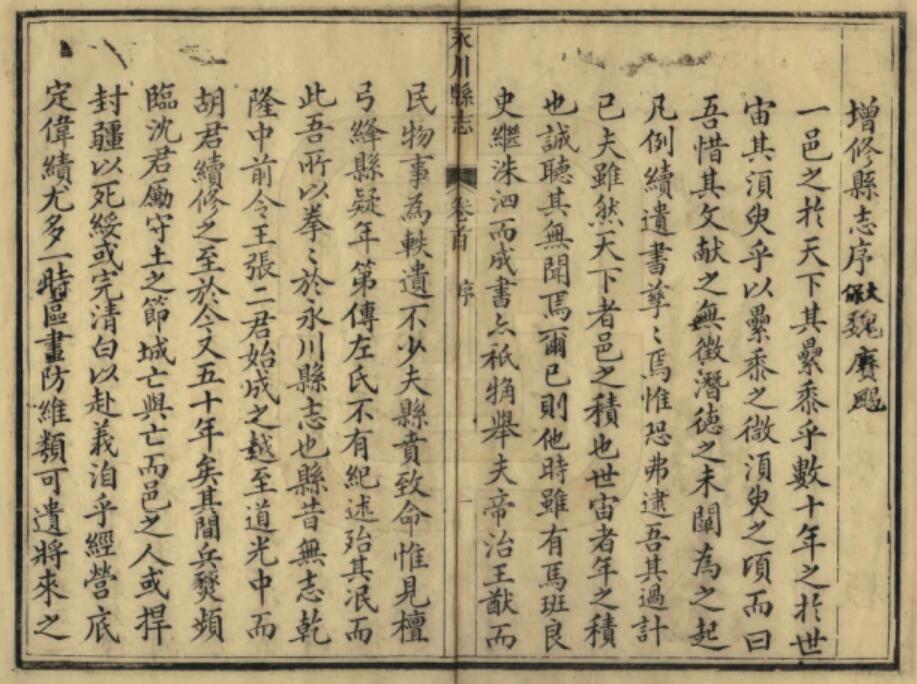 增修縣志序 大保 魏賡颺
一邑之於天下其纍黍乎數十年之於世
宙其湏臾乎以纍黍之微湏臾之頃而曰
吾惜其文献之無徵潛德之未闡為之起
凡例續遺書孳〻焉惟恐弗逮吾其過計
已夫雖然天下者邑之積也世宙者年之積
也誠聽其無聞焉爾已則他時雖有馬班良
史繼洙泗而成書亦祇觕舉夫帝治王猷而
永川縣志 卷首 序 一
民物事為軼遺不少夫縣賁致命惟見檀
弓絳縣疑年第傳左氏不有紀述殆其泯而
此吾所以拳〻於永川縣志也縣昔無志乾
隆中前令王張二君始成之越至道光中而
胡君續修之至於今又五十年矣其間兵燹頻
臨沈君勵守土之節城亡與亡而邑之人或捍
封疆以死綏或完清白以赴義洎乎經營底
定偉績尤多一時區畫防維類可遺將來之